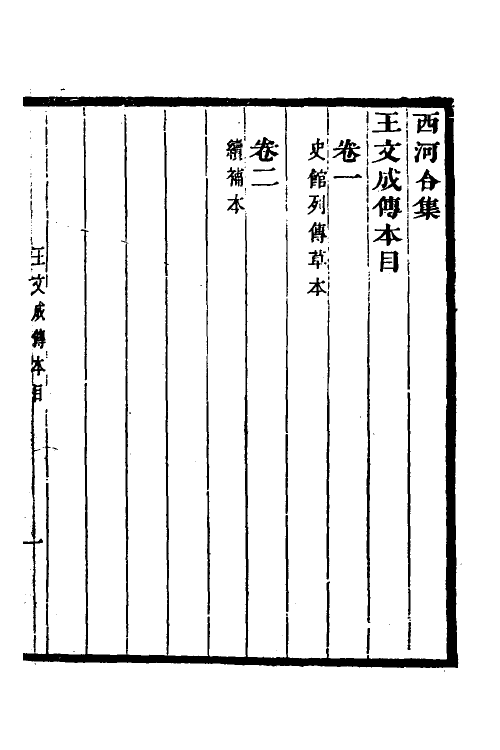 西河合集
王文成傳本目
卷一
史館列傳草本
卷二
續補本
王文成傳本目
一